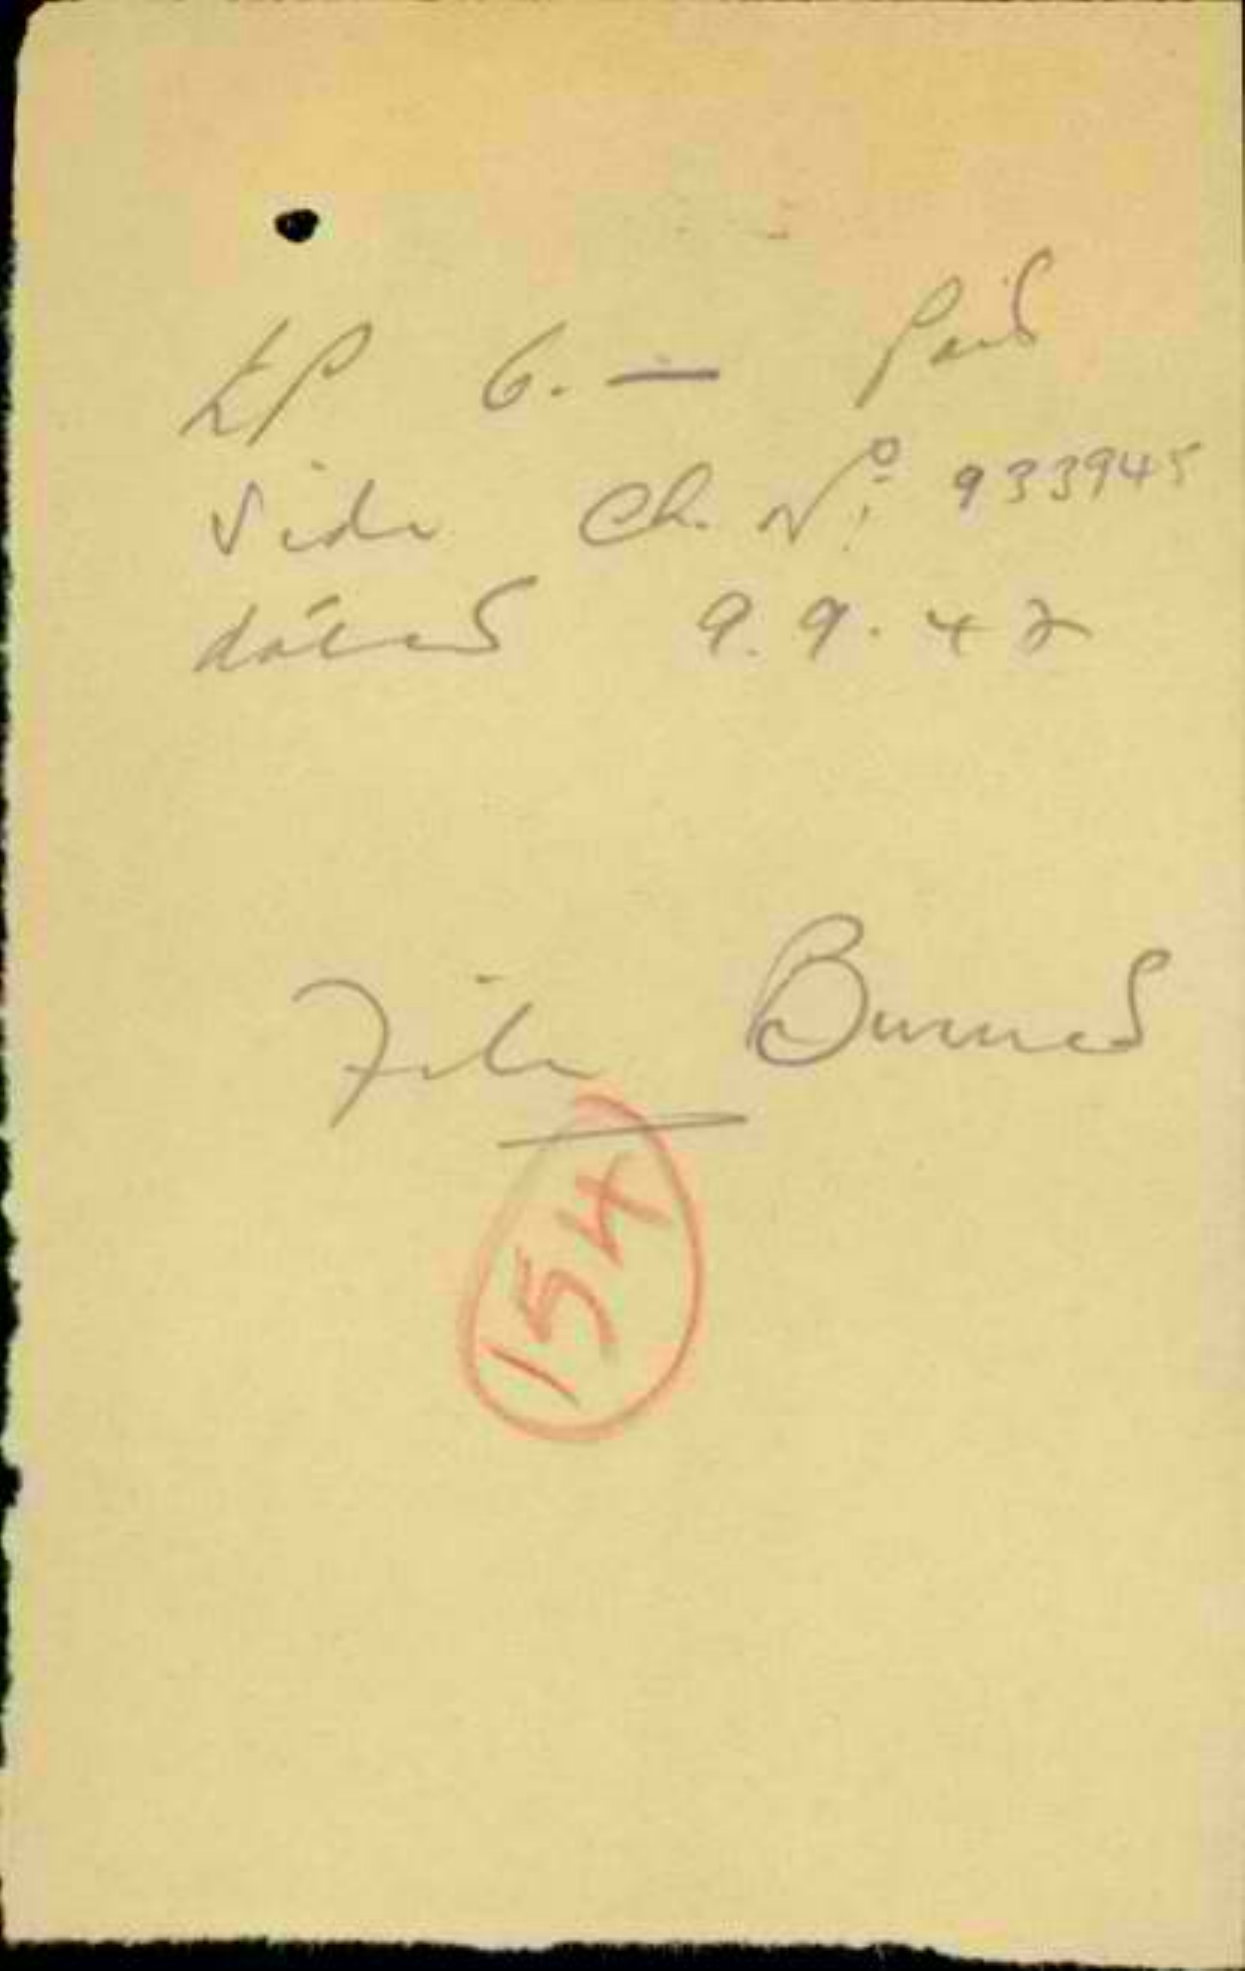 £P 6.— Paid
Vide Ch. No. 933945
dated 9.9.47
File Burned
154